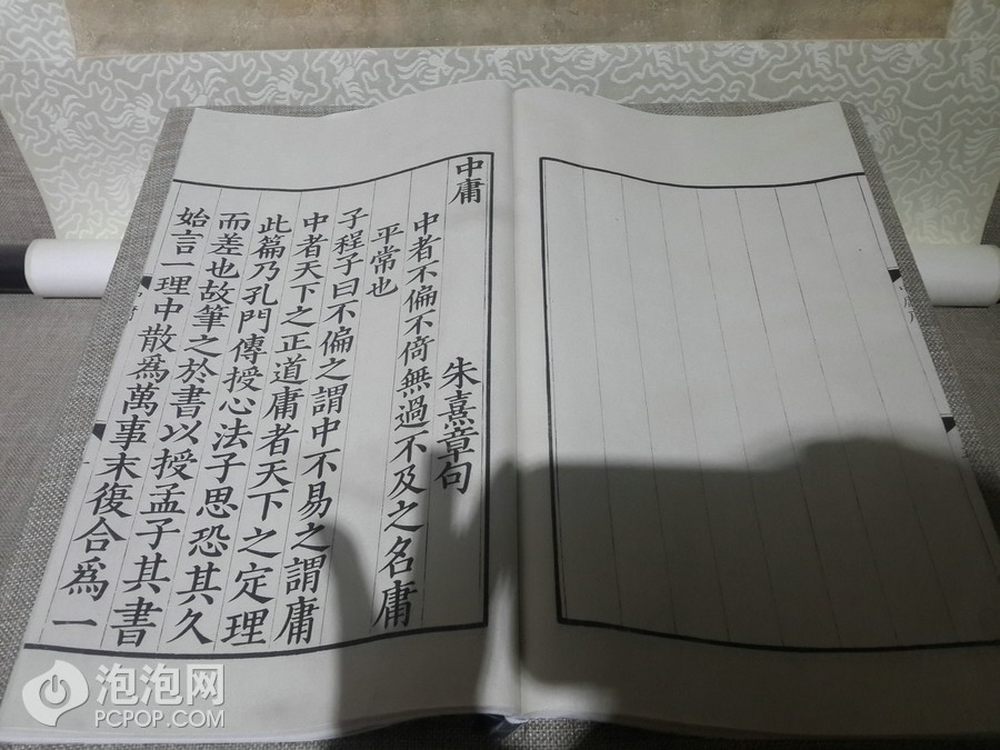 中庸
朱熹章句
中者不偏不倚無過不及之名庸
平常也
子程子曰不偏之謂中不易之謂庸
中者天下之正道庸者天下之定理
此篇乃孔門傳授心法子思恐其久
而差也故筆之於書以授孟子其書
始言一理中散爲萬事末復合爲一
泡泡网
PCPOP.COM